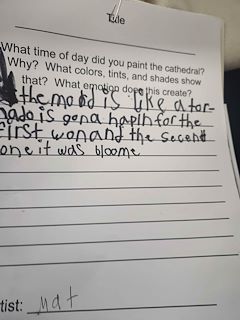 Title
What time of day did you paint the cathedral?
Why? What colors, tints, and shades show
that? What emotion does this create?
the mood is like a tor-
nado is gona hapin for the
first wonand the secent
one it was bloome
tist: Mat